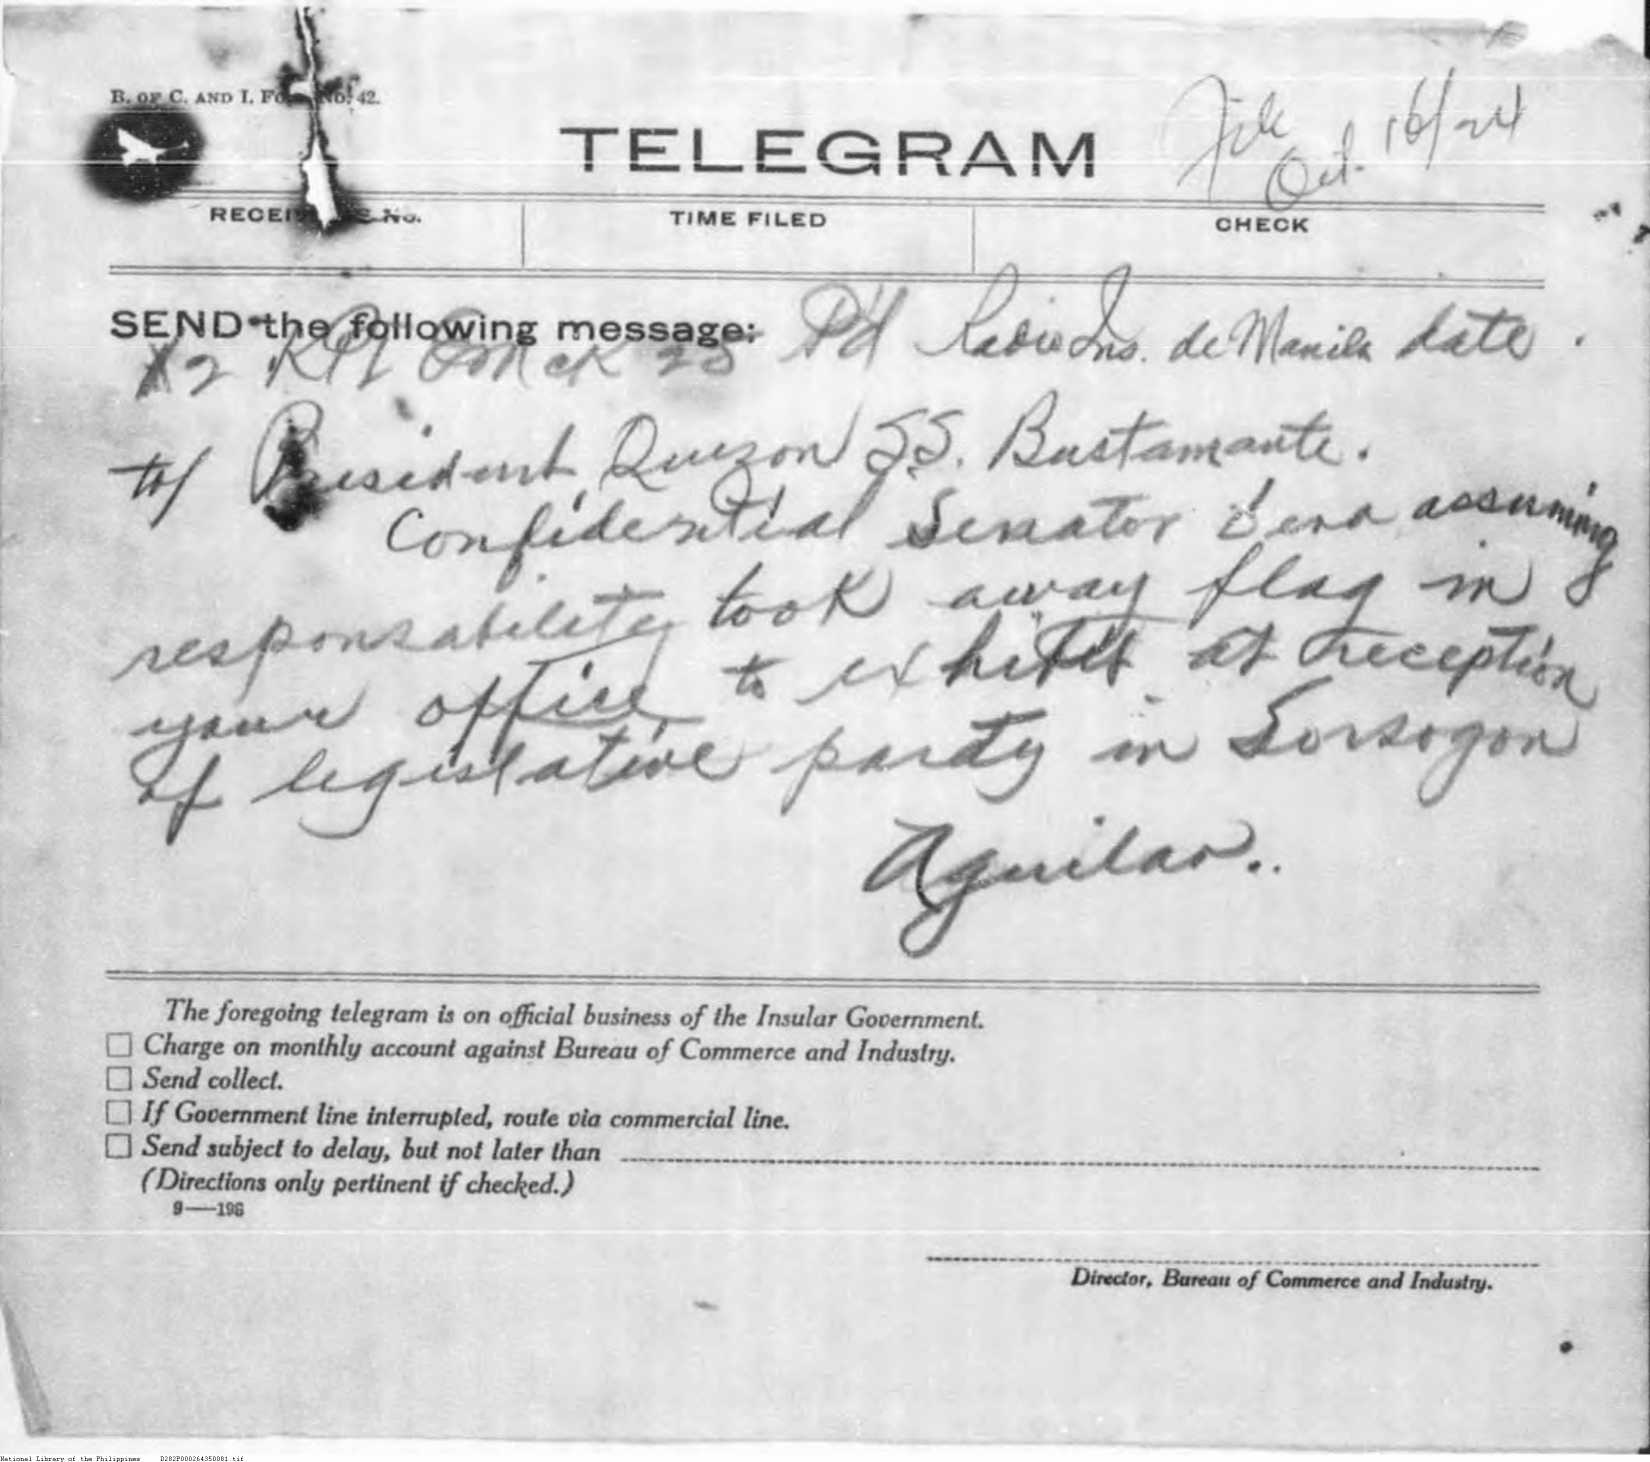 B. OF C. AND I. FORM NO. 42.
File
Oct. 16/24
TELEGRAM
RECEIVER'S No.
TIME FILED
CHECK
SEND the following message:
12 CK 28 Pd Radio Ins. de Manila date.
to/ President Quezon SS. Bustamante.
Confidential Senator Vera assuming
responsability took away flag in
your office to exhibit at reception
of legislative party in Sorsogon
Aguilar..
The foregoing telegram is on official business of the Insular Government.
☐ Charge on monthly account against Bureau of Commerce and Industry.
☐ Send collect.
☐ If Government line interrupted, route via commercial line.
☐ Send subject to delay, but not later than
(Directions only pertinent if checked.)
9——196
Director, Bureau of Commerce and Industry.
National Library of the Philippines D282P000264350081.tif